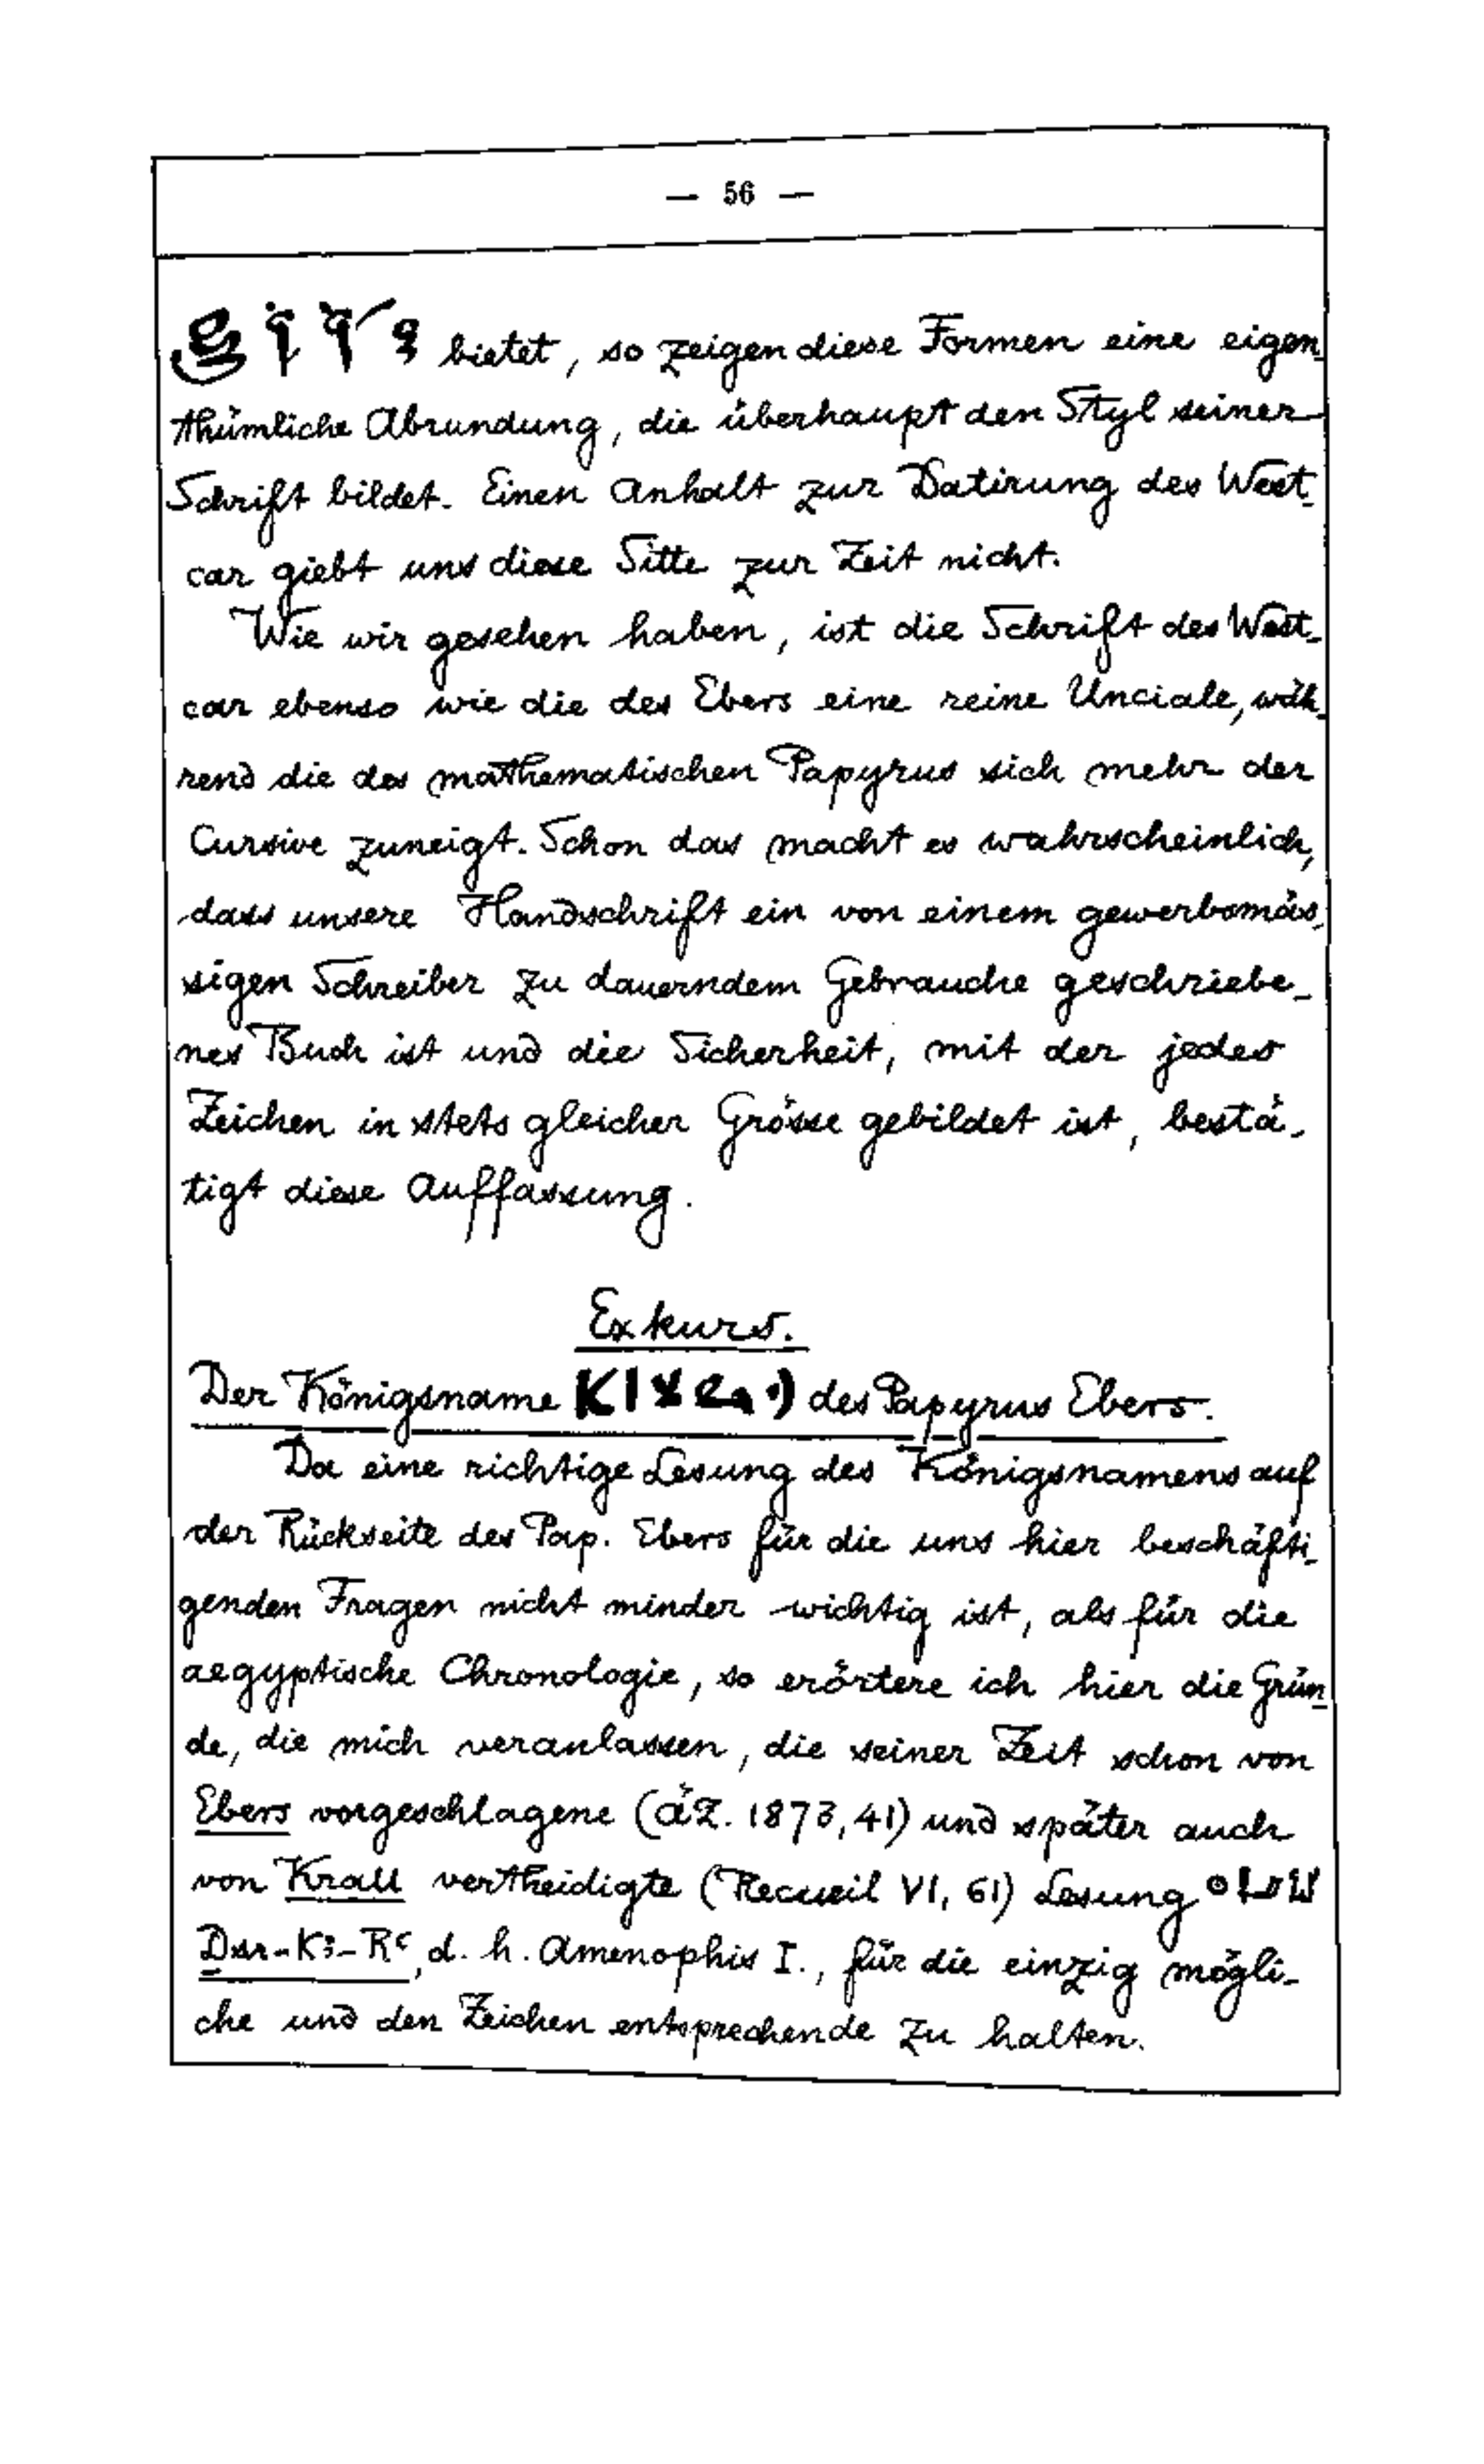 — 56 —
bietet, so zeigen diese Formen eine eigen-
thümliche Abrundung, die überhaupt den Styl seiner
Schrift bildet. Einen Anhalt zur Datirung des West-
car giebt uns diese Sitte zur Zeit nicht.
Wie wir gesehen haben, ist die Schrift des West-
car ebenso wie die des Ebers eine reine Unciale, wäh-
rend die des mathematischen Papyrus sich mehr der
Cursive zuneigt. Schon das macht es wahrscheinlich,
dass unsere Handschrift ein von einem gewerbsmäs-
sigen Schreiber zu dauerndem Gebrauche geschriebe-
nes Buch ist und die Sicherheit, mit der jedes
Zeichen in stets gleicher Grösse gebildet ist, bestä-
tigt diese Auffassung.
Exkurs.
Der Königsname des Papyrus Ebers.
Da eine richtige Lesung des Königsnamens auf
der Rückseite des Pap. Ebers für die uns hier beschäfti-
genden Fragen nicht minder wichtig ist, als für die
aegyptische Chronologie, so erörtere ich hier die Grün-
de, die mich veranlassen, die seiner Zeit schon von
Ebers vorgeschlagene (ÄZ. 1873, 41) und später auch
von Krall vertheidigte (Recueil VI, 61) Lesung
Ḏsr-Kꜣ-Rꜥ, d. h. Amenophis I., für die einzig mögli-
che und den Zeichen entsprechende zu halten.